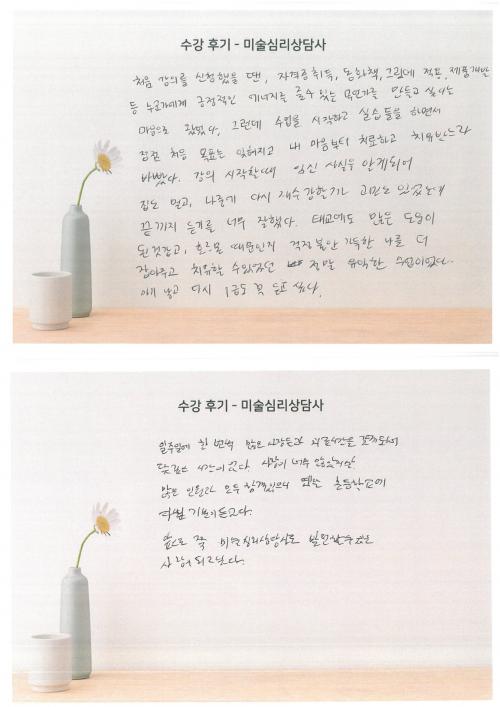 수강 후기 - 미술심리상담사
처음 강의를 신청했을 땐, 자격증취득, 동화책, 그림에 적용, 제품개발
등 누군가에게 긍정적인 에너지를 줄수있는 무언가를 만들고 싶다는
마음으로 왔었다. 그런데 수업을 시작하고 실습들을 하면서
점점 처음 목표는 잊혀지고 내 마음부터 치료하고 치유받느라
바빴다. 강의 시작할때 임신 사실을 알게되어
집도 멀고, 나중에 다시 재수강할까 고민도 있었는데
끝까지 듣기를 너무 잘했다. 태교에도 많은 도움이
된것같고, 호르몬 때문인지 걱정 불안 가득한 나를 더
잡아주고 치유할 수있었던 정말 유익한 수업이었다.
아기 낳고 다시 1급도 꼭 듣고 싶다.
수강 후기 - 미술심리상담사
일주일에 한 번씩 많은 사람들과
시간이 사람이 너무
모두 함께
다닐 기분이 든다.
앞으로 꼭 미술심리상담사로
사람이 되고싶다.